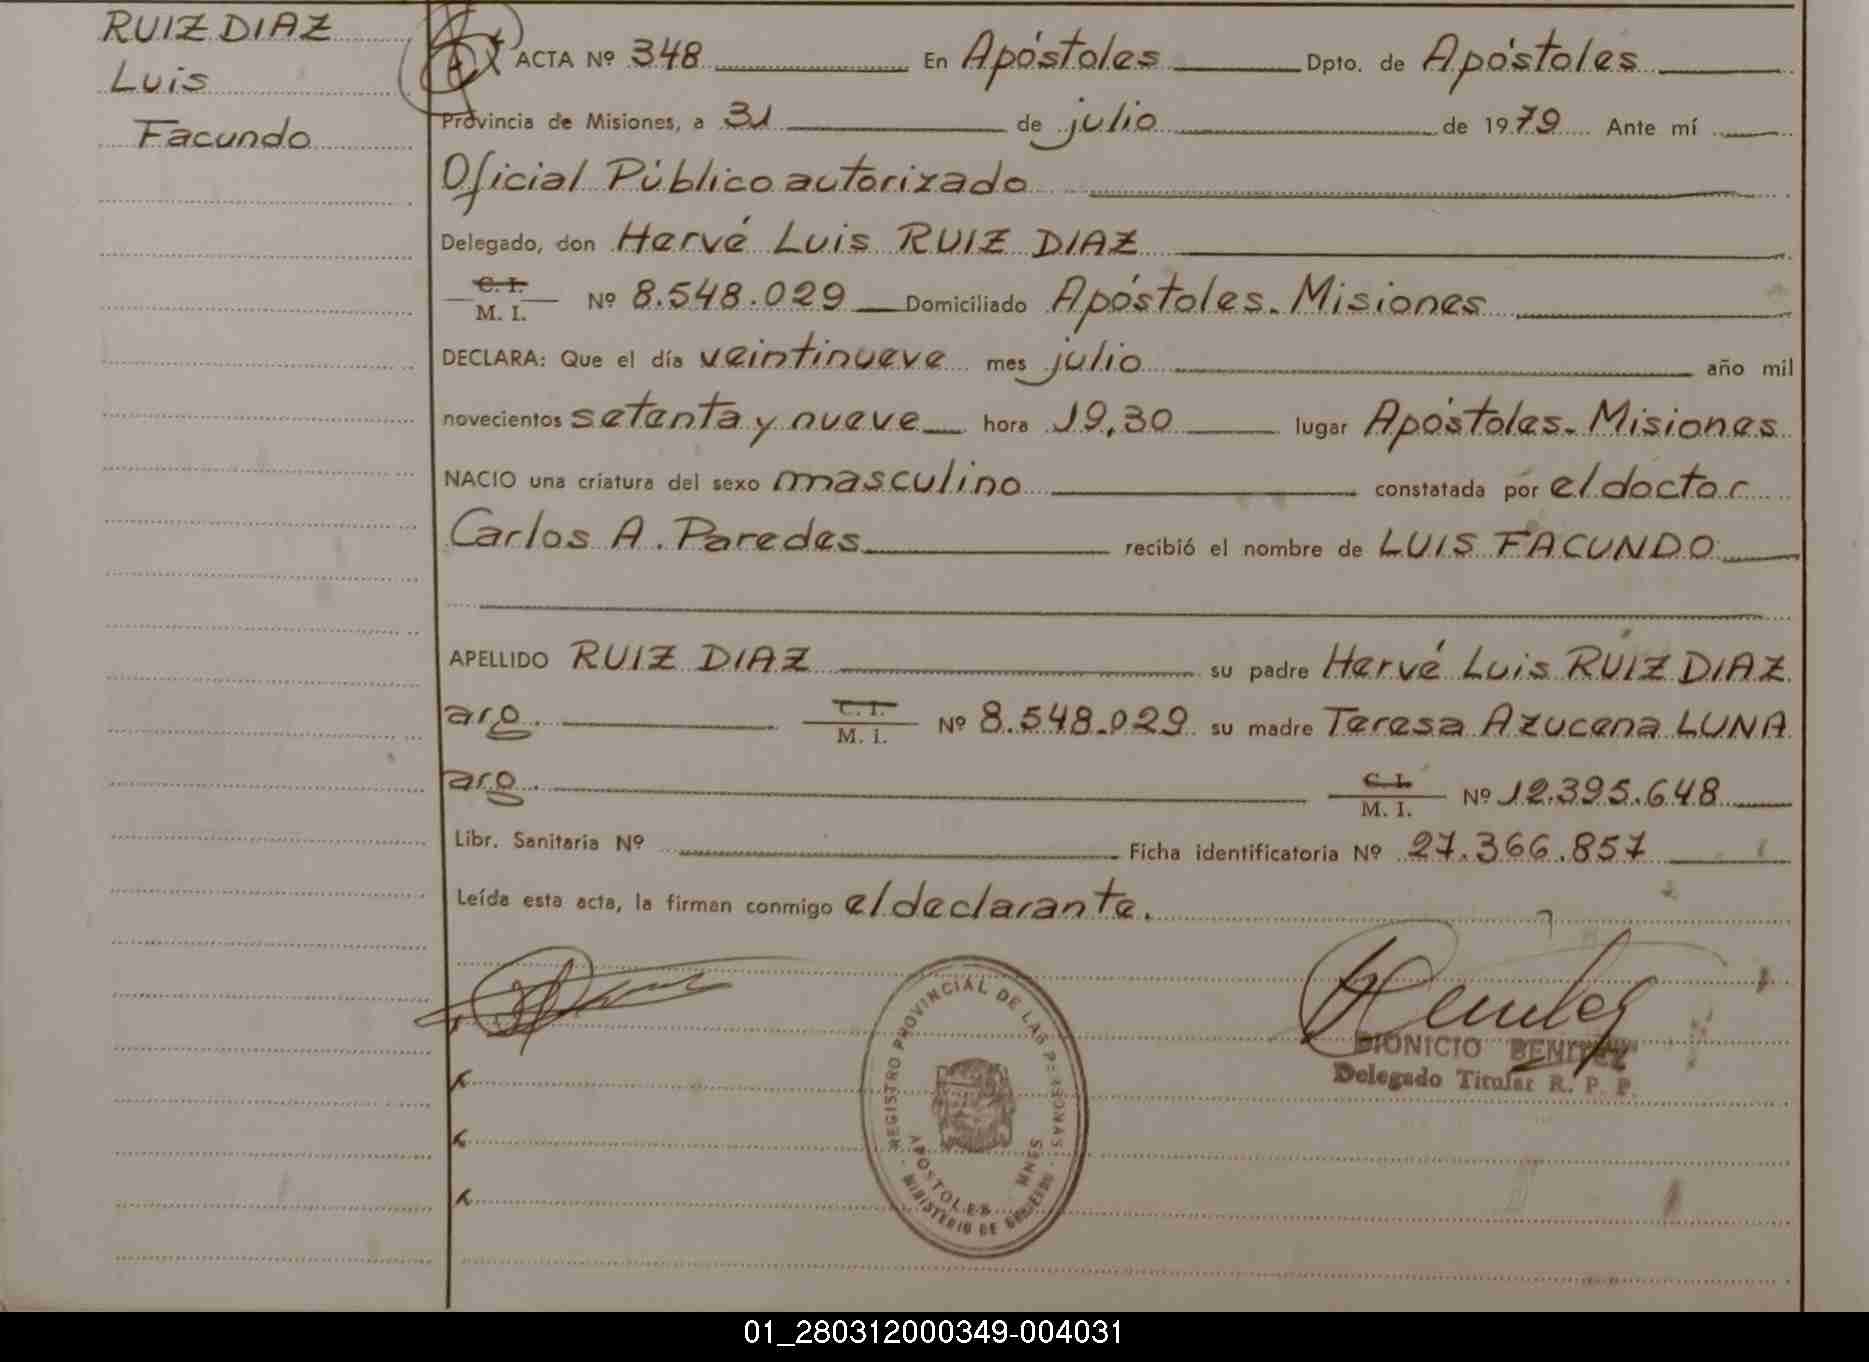 RUIZ DIAZ
Luis
Facundo
ACTA Nº 348 En Apóstoles Dpto. de Apóstoles
Provincia de Misiones, a 31 de julio de 1979 Ante mí
Oficial Público autorizado
Delegado, don Hervé Luis RUIZ DIAZ
C. I.
M. I. Nº 8.548.029 Domiciliado Apóstoles. Misiones
DECLARA: Que el día veintinueve mes julio año mil
novecientos setenta y nueve hora 19,30 lugar Apóstoles. Misiones
NACIO una criatura del sexo masculino constatada por el doctor
Carlos A. Paredes recibió el nombre de LUIS FACUNDO
APELLIDO RUIZ DIAZ su padre Hervé Luis RUIZ DIAZ
arg. C. I.
M. I. Nº 8.548.029 su madre Teresa Azucena LUNA
arg. C. I.
M. I. Nº 12.395.648
Libr. Sanitaria Nº Ficha identificatoria Nº 27.366.857
Leída esta acta, la firman conmigo el declarante.
REGISTRO PROVINCIAL DE LAS PERSONAS
APOSTOLES MNES
MINISTERIO DE GOBIERNO
DIONICIO BENITEZ
Delegado Titular R. P. P.
01_280312000349-004031